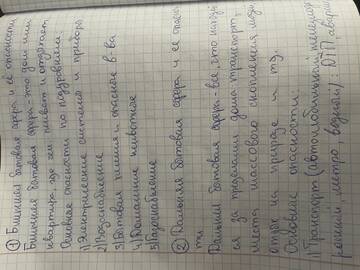 ① Ближняя бытовая сфера и её опасности
Ближняя бытовая сфера - это дом или
квартира где чел. живёт и отдыхает.
Основные опасности по подгруппам:
1) Электрические системы и приборы
2) Водоснабжение
3) Бытовая химия и опасные в-ва
4) Домашние животные
5) Газоснабжение
② Дальняя бытовая сфера и её опасно
сти
Дальняя бытовая сфера - все, что находит
ся за пределами дома транспорт,
места массового скопления людей
отдых на природе и тд.
Основные опасности:
1) Транспорт (автомобильный, пешеход
метро, водный): ДТП, аварии